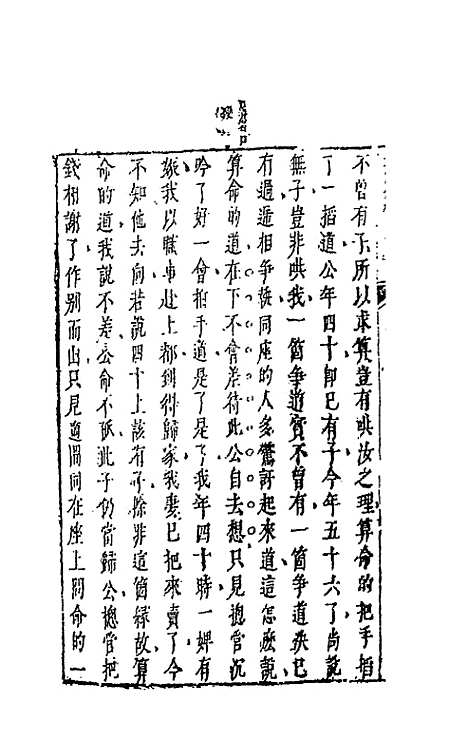 不曾有子所以求算豈有哄汝之理算命的把手掐
了一掐道公年四十卽已有子今年五十六了尚說
無子豈非哄我一箇爭道實不曾有一箇爭道決已
有過逓相爭嚷同座的人多驚訝起來道這怎麽說
算命的道在下不會差待此公自去想只見總管沉
吟了好一會拍手道是了是了我年四十時一婢有
娠我以職事赴上都到得歸家我妻已把來賣了今
不知他去向若說四十上該有子除非這箇緣故算
命的道我說不差公命不孤此子仍當歸公總管把
錢相謝了作別而出只見適間同在座上問命的一